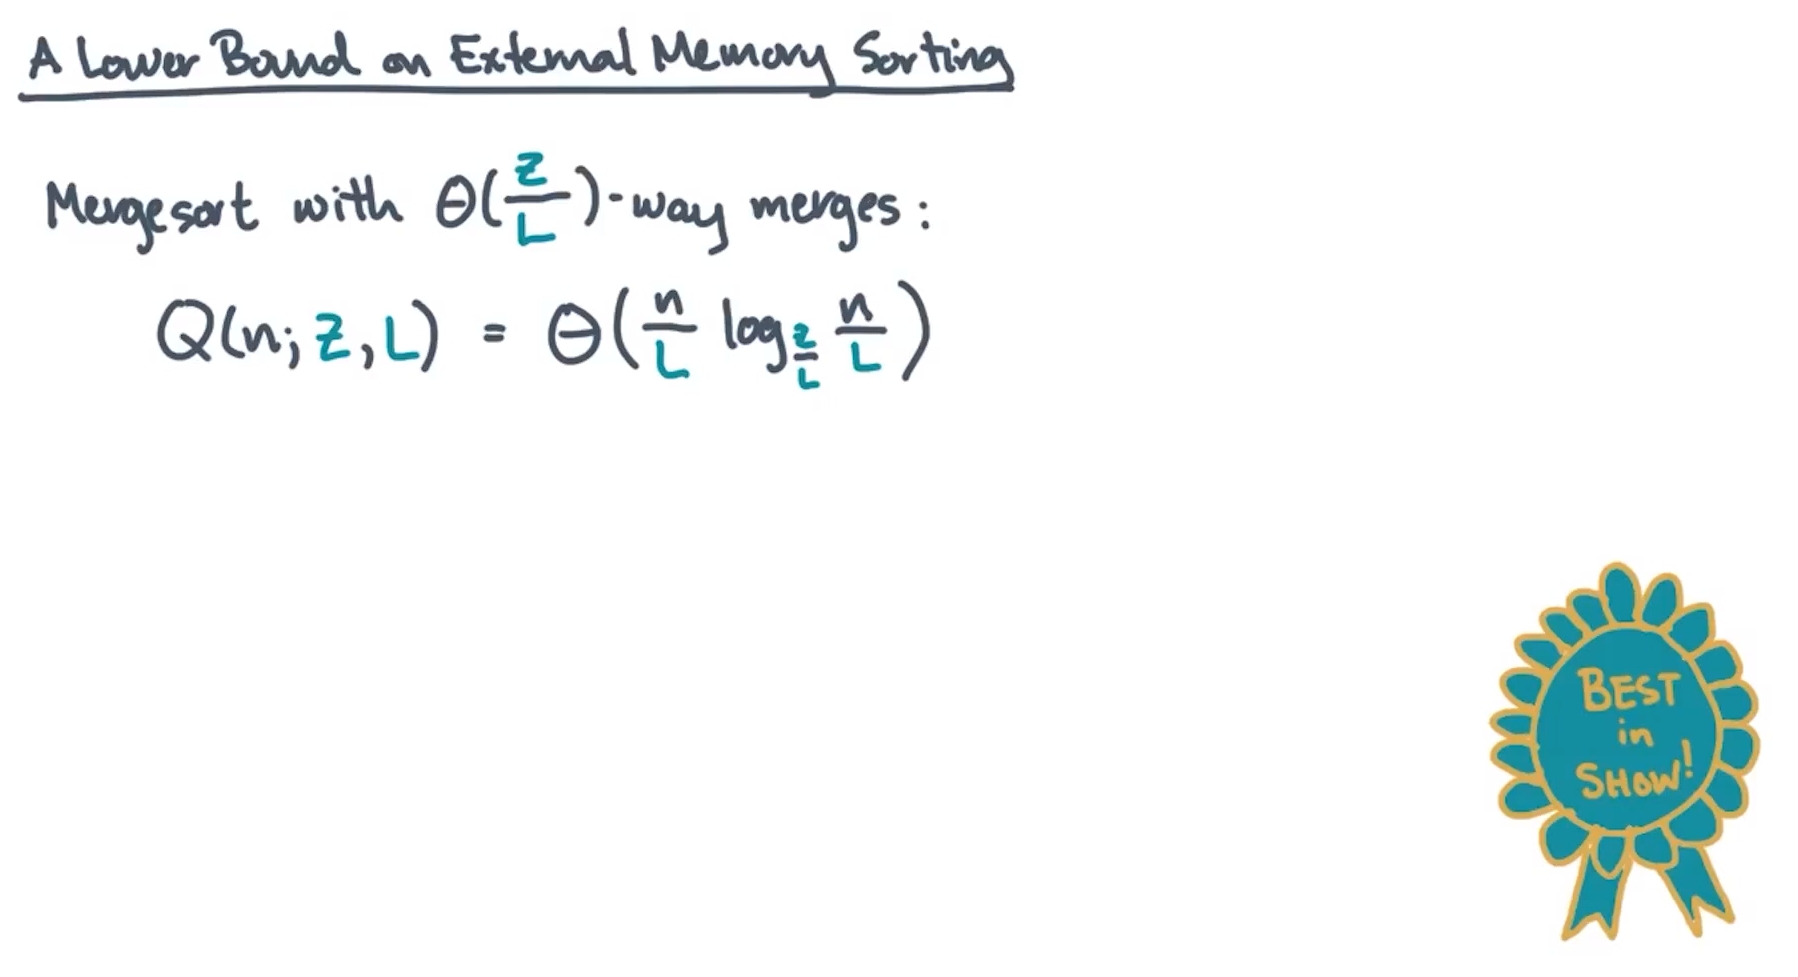 A Lower Bound on External Memory Sorting
Mergesort with Θ(Z/L)-way merges:
Q(n; Z, L) = Θ(n/L log_{Z/L} n/L)
BEST
in
SHOW!